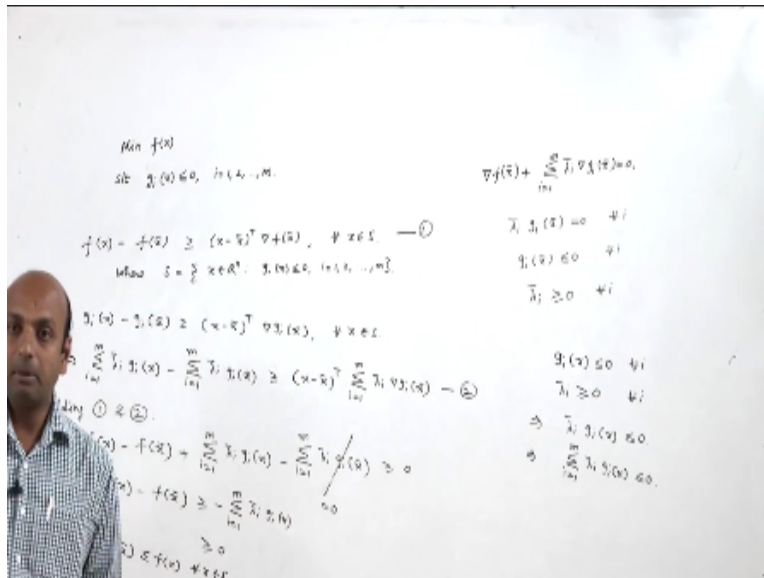 Min f(x)
s.t. gᵢ(x) ≤ 0, i=1,2,..,m.
f(x) - f(x̄) ≥ (x-x̄)ᵀ ∇f(x̄), ∀ x∈S. —①
where S = { x∈Rⁿ: gᵢ(x) ≤ 0, i=1,2,..,m}.
gᵢ(x) - gᵢ(x̄) ≥ (x-x̄)ᵀ ∇gᵢ(x̄), ∀ x∈S.
⇒ ∑ᵢ₌₁ᵐ λ̄ᵢ gᵢ(x) - ∑ᵢ₌₁ᵐ λ̄ᵢ gᵢ(x̄) ≥ (x-x̄)ᵀ ∑ᵢ₌₁ᵐ λ̄ᵢ ∇gᵢ(x̄) —②
ding ① & ②.
f(x) - f(x̄) + ∑ᵢ₌₁ᵐ λ̄ᵢ gᵢ(x) - ∑ᵢ₌₁ᵐ λ̄ᵢ gᵢ(x̄) ≥ 0
=0
(x) - f(x̄) ≥ - ∑ᵢ₌₁ᵐ λ̄ᵢ gᵢ(x)
≥ 0
x̄) ≤ f(x) ∀ x∈S
∇f(x̄) + ∑ᵢ₌₁ᵐ λ̄ᵢ ∇gᵢ(x̄) = 0,
λ̄ᵢ gᵢ(x̄) = 0 ∀i
gᵢ(x̄) ≤ 0 ∀i
λ̄ᵢ ≥ 0 ∀i
gᵢ(x) ≤ 0 ∀i
λ̄ᵢ ≥ 0 ∀i
⇒ λ̄ᵢ gᵢ(x) ≤ 0.
⇒ ∑ᵢ₌₁ᵐ λ̄ᵢ gᵢ(x) ≤ 0.